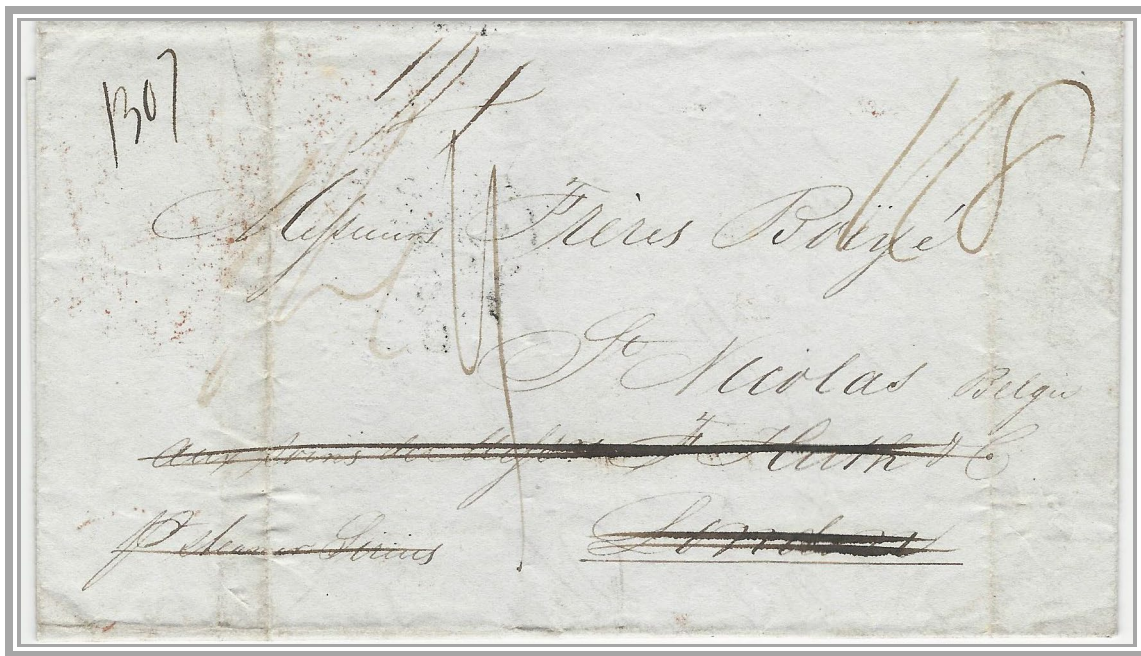 1307
118
Messieurs Frères Boÿé
St Nicolas Belgie
aux soins de Messrs Ft Huth & C
pr steamer Sirius
Londres